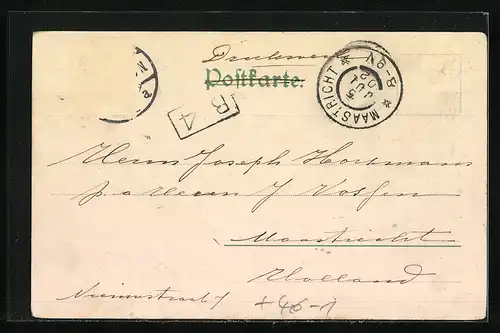 Drucksache
Postkarte
MAASTRICHT 8-9V
5 JUL
02
B4
Herrn Joseph Hortmann
p. a Herrn J Vossen
Maastricht
Holland
Nieuwstraat 7
+46-1